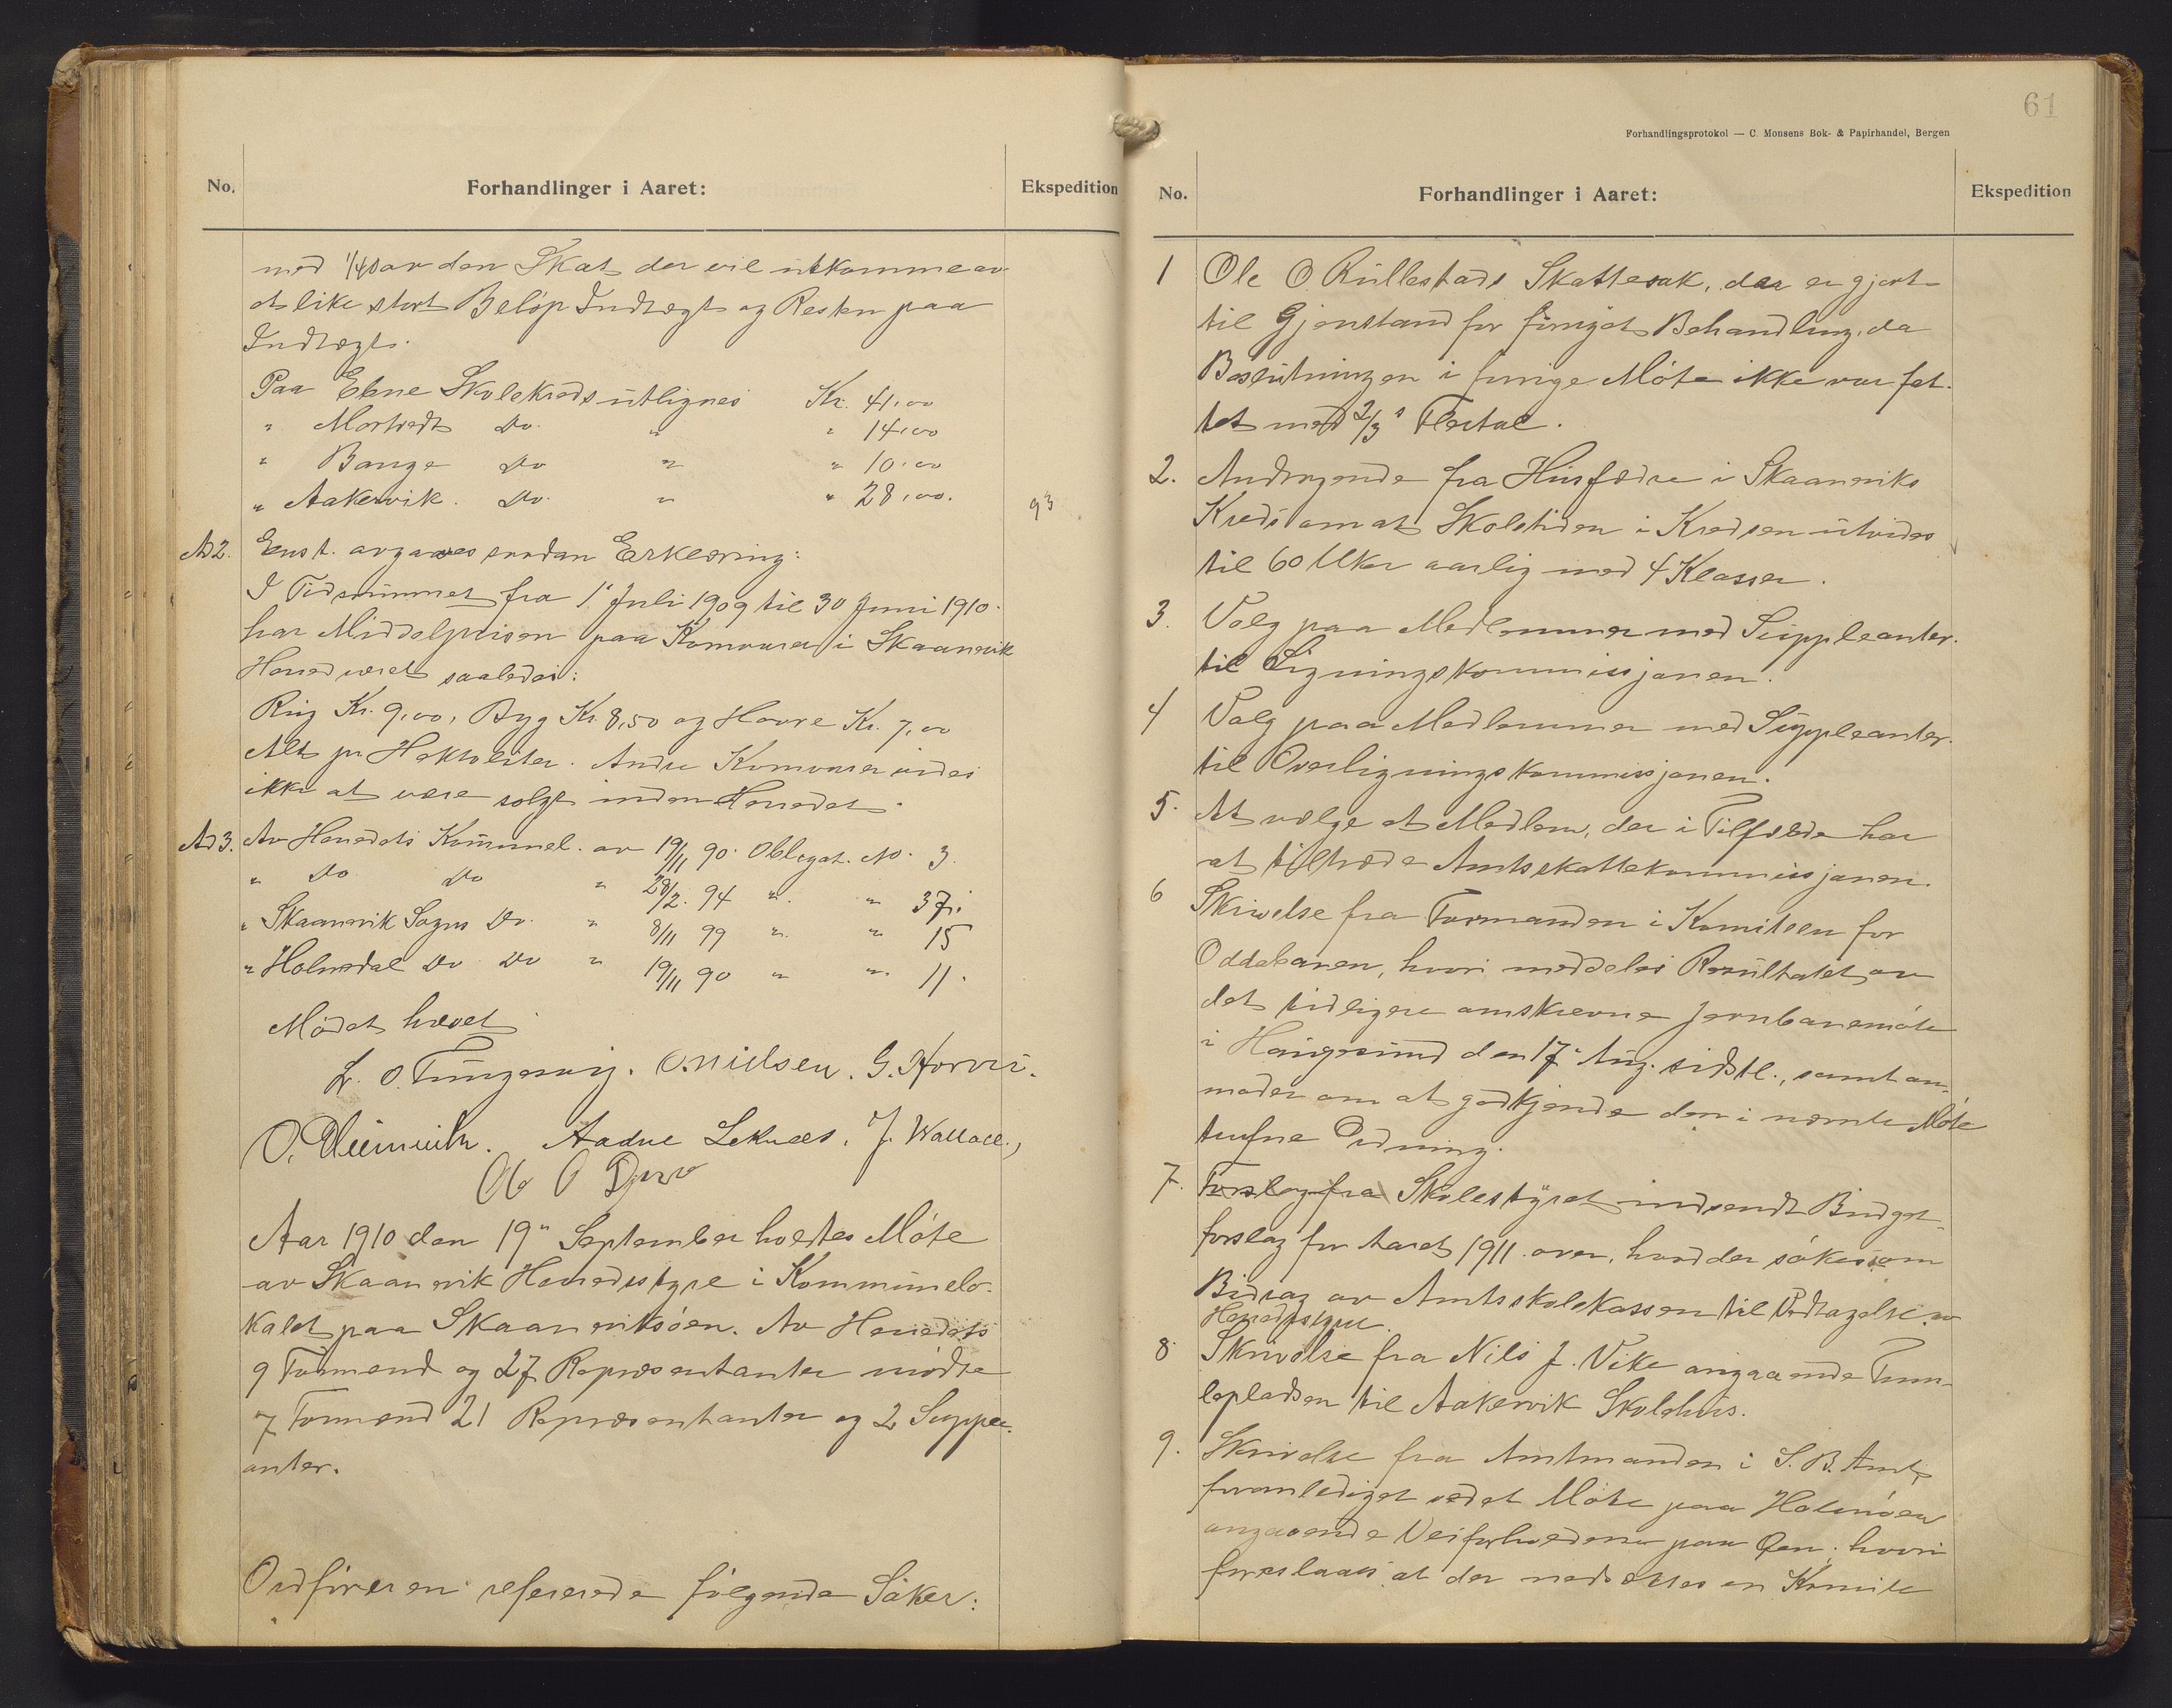 No.
Forhandlinger i Aaret:
Ekspedition
med 1/40 av den Skat der vil utkomme av
et like stort Beløp Indtægt og Resten paa
Indtægt.
Paa Ebne Skolekreds utlignes Kr. 41,00
" Mortvedt Do. " " 14,00
" Bauge Do " " 10,00
" Aakervik. Do. " " 28,00.
93
Ad 2. Enst. avgaves saadan Erklæring:
I Tidsrummet fra 1ste Juli 1909 til 30 Juni 1910
har Middelprisen paa Kornvarer i Skaanevik
Herred været saaledes:
Rug Kr. 9,00, Byg Kr. 8,50 og Havre Kr. 7,00
Alt pr Hektoliter. Andre Kornvarer vides
ikke at være solgt inden Herredet.
Ad 3. Av Herredets Kommunel. av 19/11 90. Obligat. No. 3.
" Do Do " 28/2. 94 " " 37.
" Skaanevik Sogns Do. " 8/11 99 " " 15
" Holmedal Do Do " 19/11 90 " " 11.
Mødet hævet
L. O. Tungesvig. O. Nielsen. G. Hovri.
O. Aadne Leknæs. J. Wallace.,
Ole O
Aar 1910 den 19de September holdtes Møte
av Skaanevik Herredsstyre i Kommunelo-
kalet paa Skaaneviksøen. Av Herredets
9 Formænd og 27 Repræsentanter mødte
7 Formænd 21 Repræsentanter og 2 Supple-
anter.
Ordføreren refererede følgende Saker:
61
Forhandlingsprotokol — C. Monsens Bok- & Papirhandel, Bergen
No.
Forhandlinger i Aaret:
Ekspedition
1 Ole O. Rullestads Skattesak, der er gjort
til Gjenstand for fornyet Behandling, da
Beslutningen i forrige Møte ikke var fat-
tet med 2/3s Flertal.
2. Andragende fra Husfædre i Skaaneviks
Kreds om at Skoletiden i Kredsen utvides
til 60 Uker aarlig med 4 Klasser.
3. Valg paa Medlemmer med Suppleanter
til Ligningskommissjonen.
4 Valg paa Medlemmer med Suppleanter
til Overligningskommissjonen.
5. At vælge et Medlem, der i Tilfælde har
at tiltræde Amtsskattekommissjonen.
6 Skrivelse fra Formanden i Komiteen for
Oddabanen, hvori meddeles Resultatet av
det tidligere omskrevne Jernbanemøte
i Haugesund den 17de Aug. sidstl., samt an-
moder om at godkjende den i nævnte Møte
trufne Ordning.
7. Forslag fra Skolestyret indsendt Budget-
forslag for Aaret 1911 over, hvad der søkes som
Bidrag av Amtsskolekassen til Vedtagelse av
Herredsstyret.
8. Skrivelse fra Nils J. Vike angaaende Tum-
lepladsen til Aakervik Skolehus.
9. Skrivelse fra Amtmanden i S. B. Amt,
foranlediget ved et Møte paa Halsnøen
angaaende Veiforholdene paa Øen, hvori
foreslaaes at der nedsættes en Komite